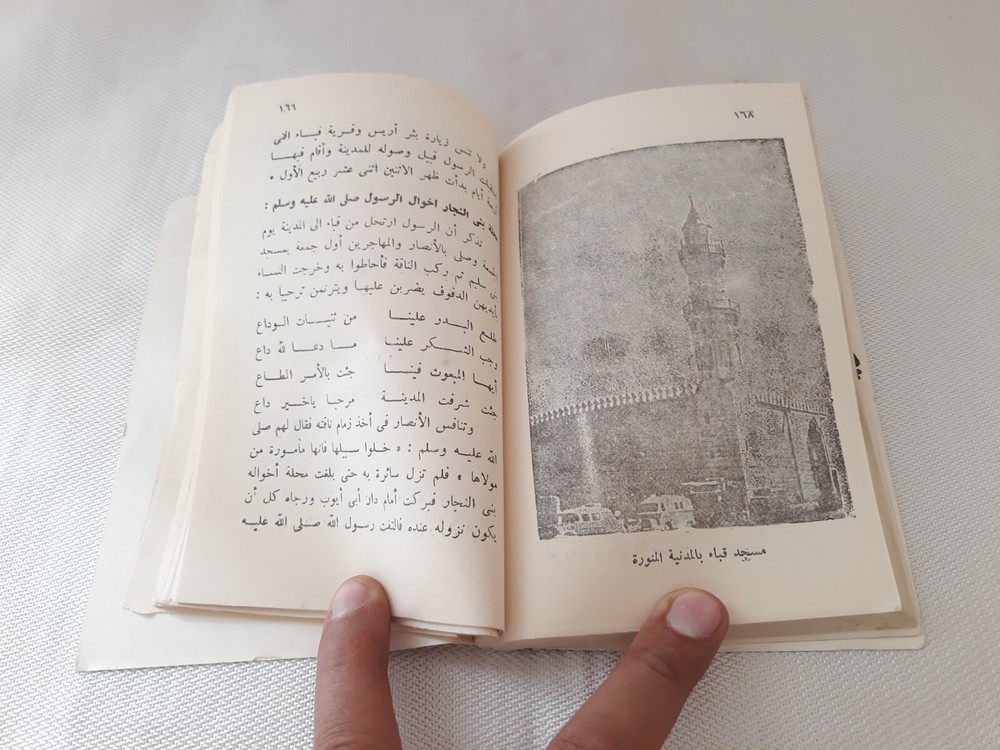 ١٦٨
مسجد قباء بالمدنية المنورة
١٦٩
ولا تنس زيارة بئر أريس وقرية قباء التى
الرسول قبيل وصوله للمدينة وأقام فيها
أيام بدأت ظهر الاثنين اثنى عشر ربيع الأول .
محلة بنى النجار اخوال الرسول صلى الله عليه وسلم :
تذكر أن الرسول ارتحل من قباء الى المدينة يوم
الجمعة وصلى بالأنصار والمهاجرين أول جمعة بمسجد
بنى سليم ثم ركب الناقة فأحاطوا به وخرجت النساء
بأيديهن الدفوف يضربن عليها ويترنمن ترحيبا به :
طلع البدر علينا من ثنيات الوداع
وجب الشكر علينا ما دعا لله داع
أيها المبعوث فينا جئت بالأمر المطاع
جئت شرفت المدينة مرحبا ياخير داع
وتنافس الأنصار فى أخذ زمام ناقته فقال لهم صلى
الله عليه وسلم : « خلوا سبيلها فانها مأمورة من
مولاها » فلم تزل سائرة به حتى بلغت محلة أخواله
بنى النجار فبركت أمام دار أبى أيوب ورجاه كل أن
يكون نزوله عنده فالتفت رسول الله صلى الله عليه